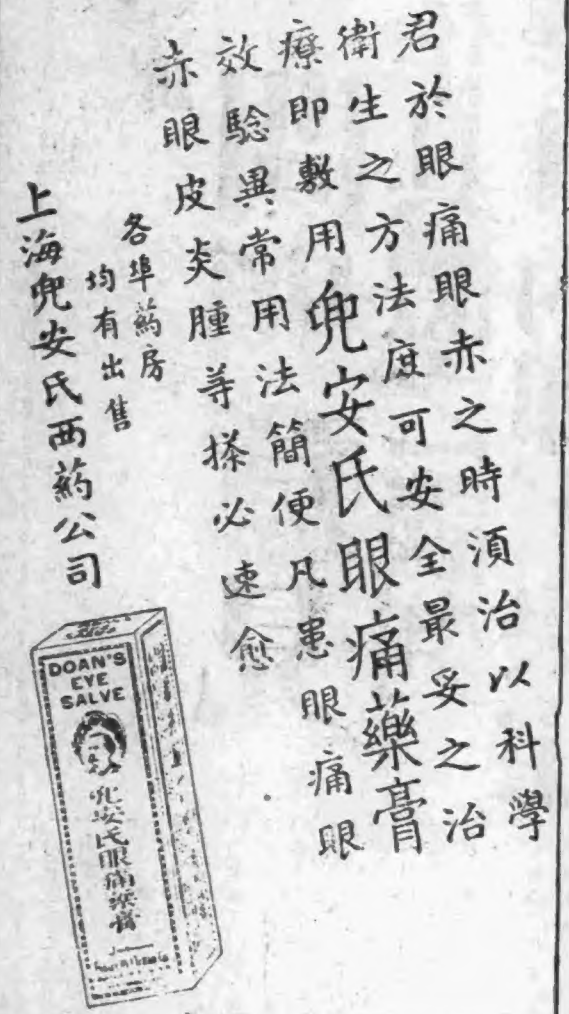 君於眼痛眼赤之時須治以科學
衛生之方法庶可安全最妥之治
療即敷用兜安氏眼痛藥膏
效驗異常用法簡便凡患眼痛眼
赤眼皮炎腫等搽必速愈
各埠藥房
均有出售
上海兜安氏西藥公司
DOAN'S
EYE
SALVE
兜安氏眼痛藥膏